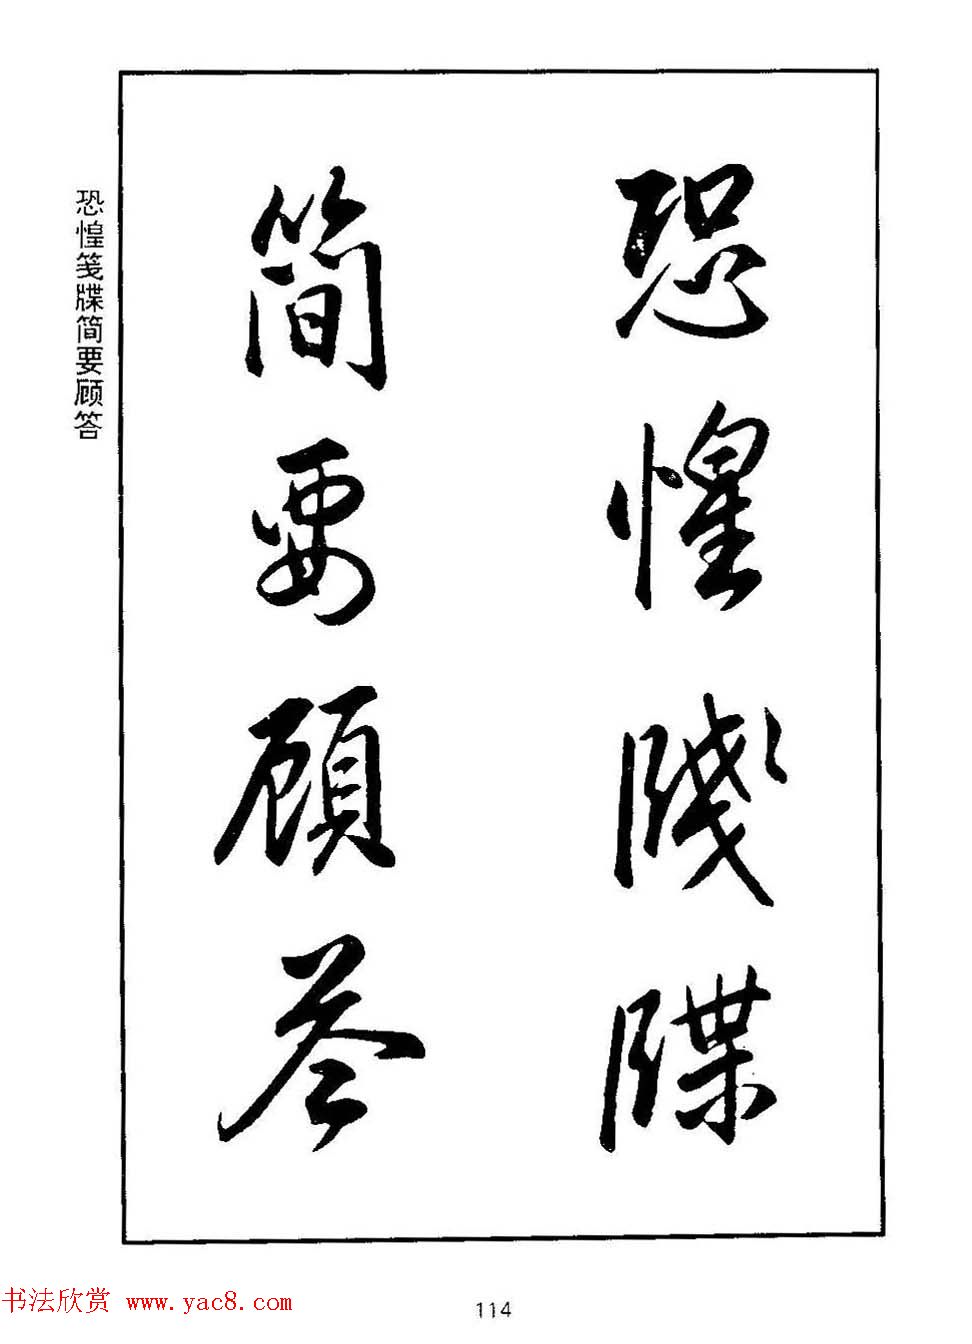 恐惶牋牒
简要顾答
恐惶笺牒简要顾答
书法欣赏 www.yac8.com
114